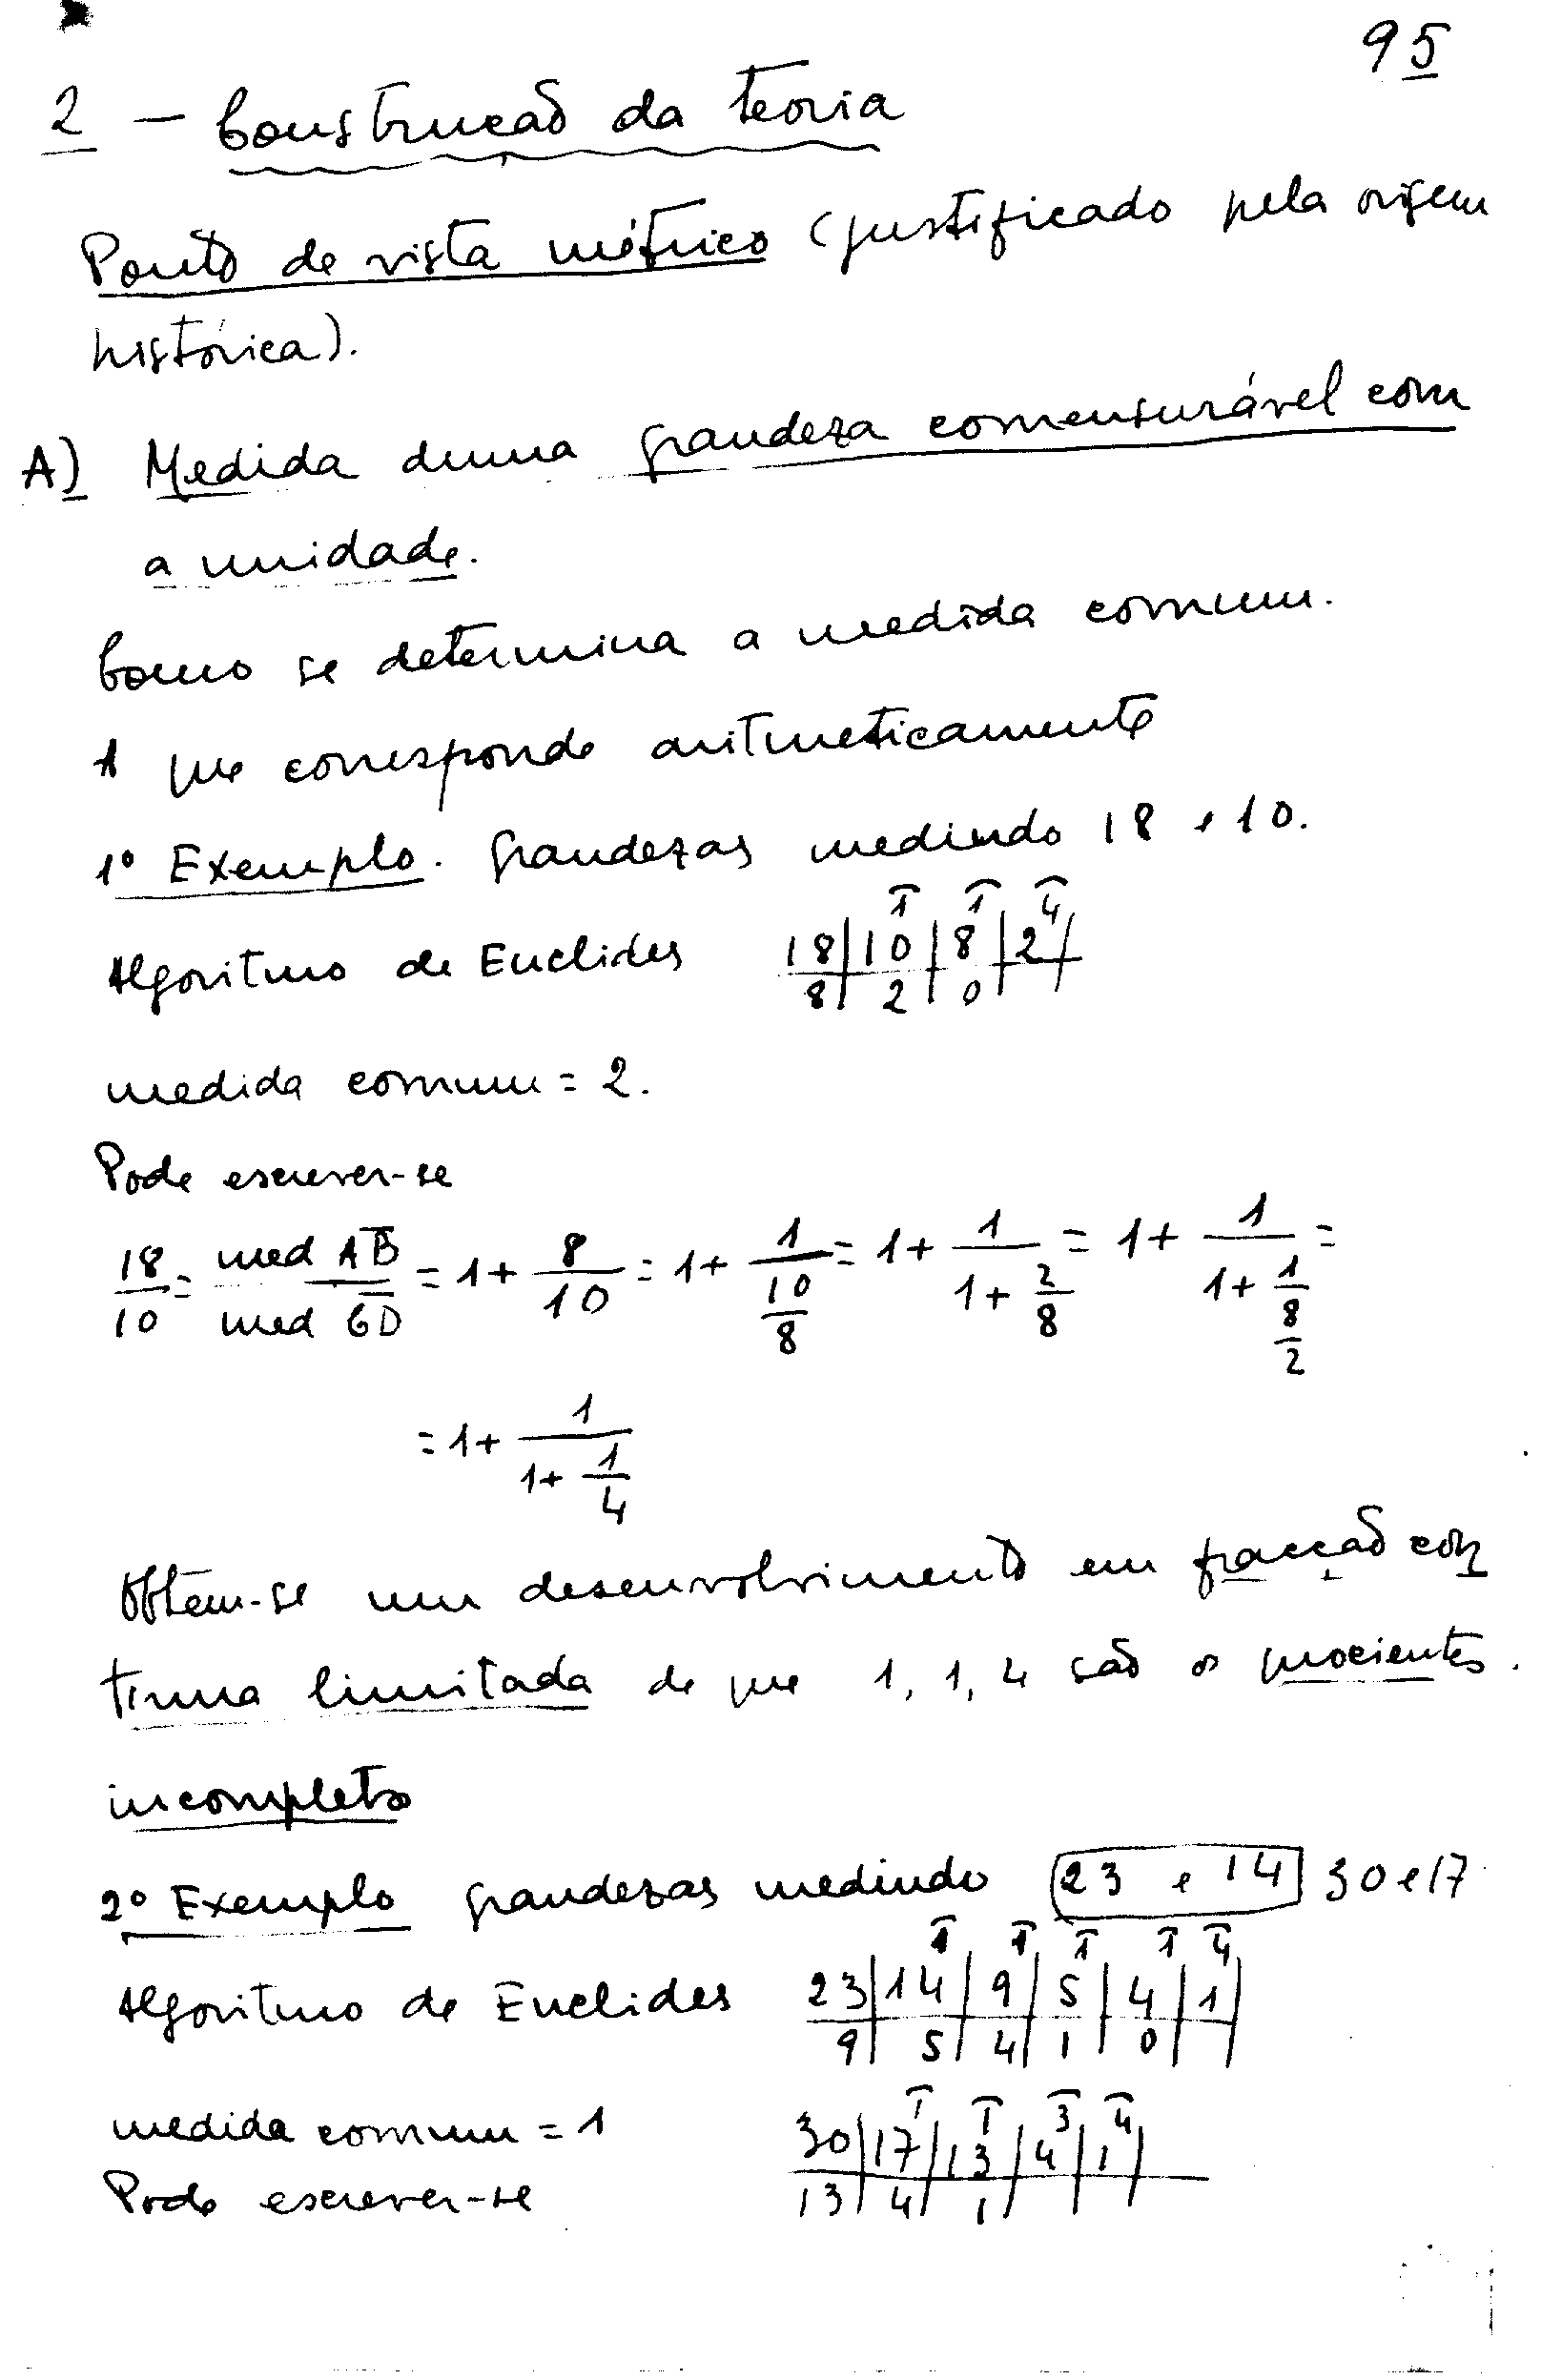 95
2 – Construção da teoria
Ponto de vista métrico (justificado pela origem
histórica).
A) Medida duma grandeza comensurável com
a unidade.
Como se determina a medida comum.
A que corresponde aritmeticamente
1º Exemplo. Grandezas medindo 18 e 10.
1 1 4
Algoritmo de Euclides 18|10|8|2|
8| 2|0|
medida comum = 2.
Pode escrever-se
18/10 = med AB / med CD = 1 + 8/10 = 1 + 1/(10/8) = 1 + 1/(1 + 2/8) = 1 + 1/(1 + 1/(8/2)) =
= 1 + 1/(1 + 1/4)
Obtem-se um desenvolvimento em fracção con
tinua limitada de que 1, 1, 4 são os quocientes
incompletos
2º Exemplo grandezas medindo 23 e 14 30 e 17
1 1 1 1 4
Algoritmo de Euclides 23|14|9|5|4|1|
9| 5|4|1|0|
1 1 3 4
medida comum = 1 30|17|13|4|1|
Pode escrever-se 13|4|1|